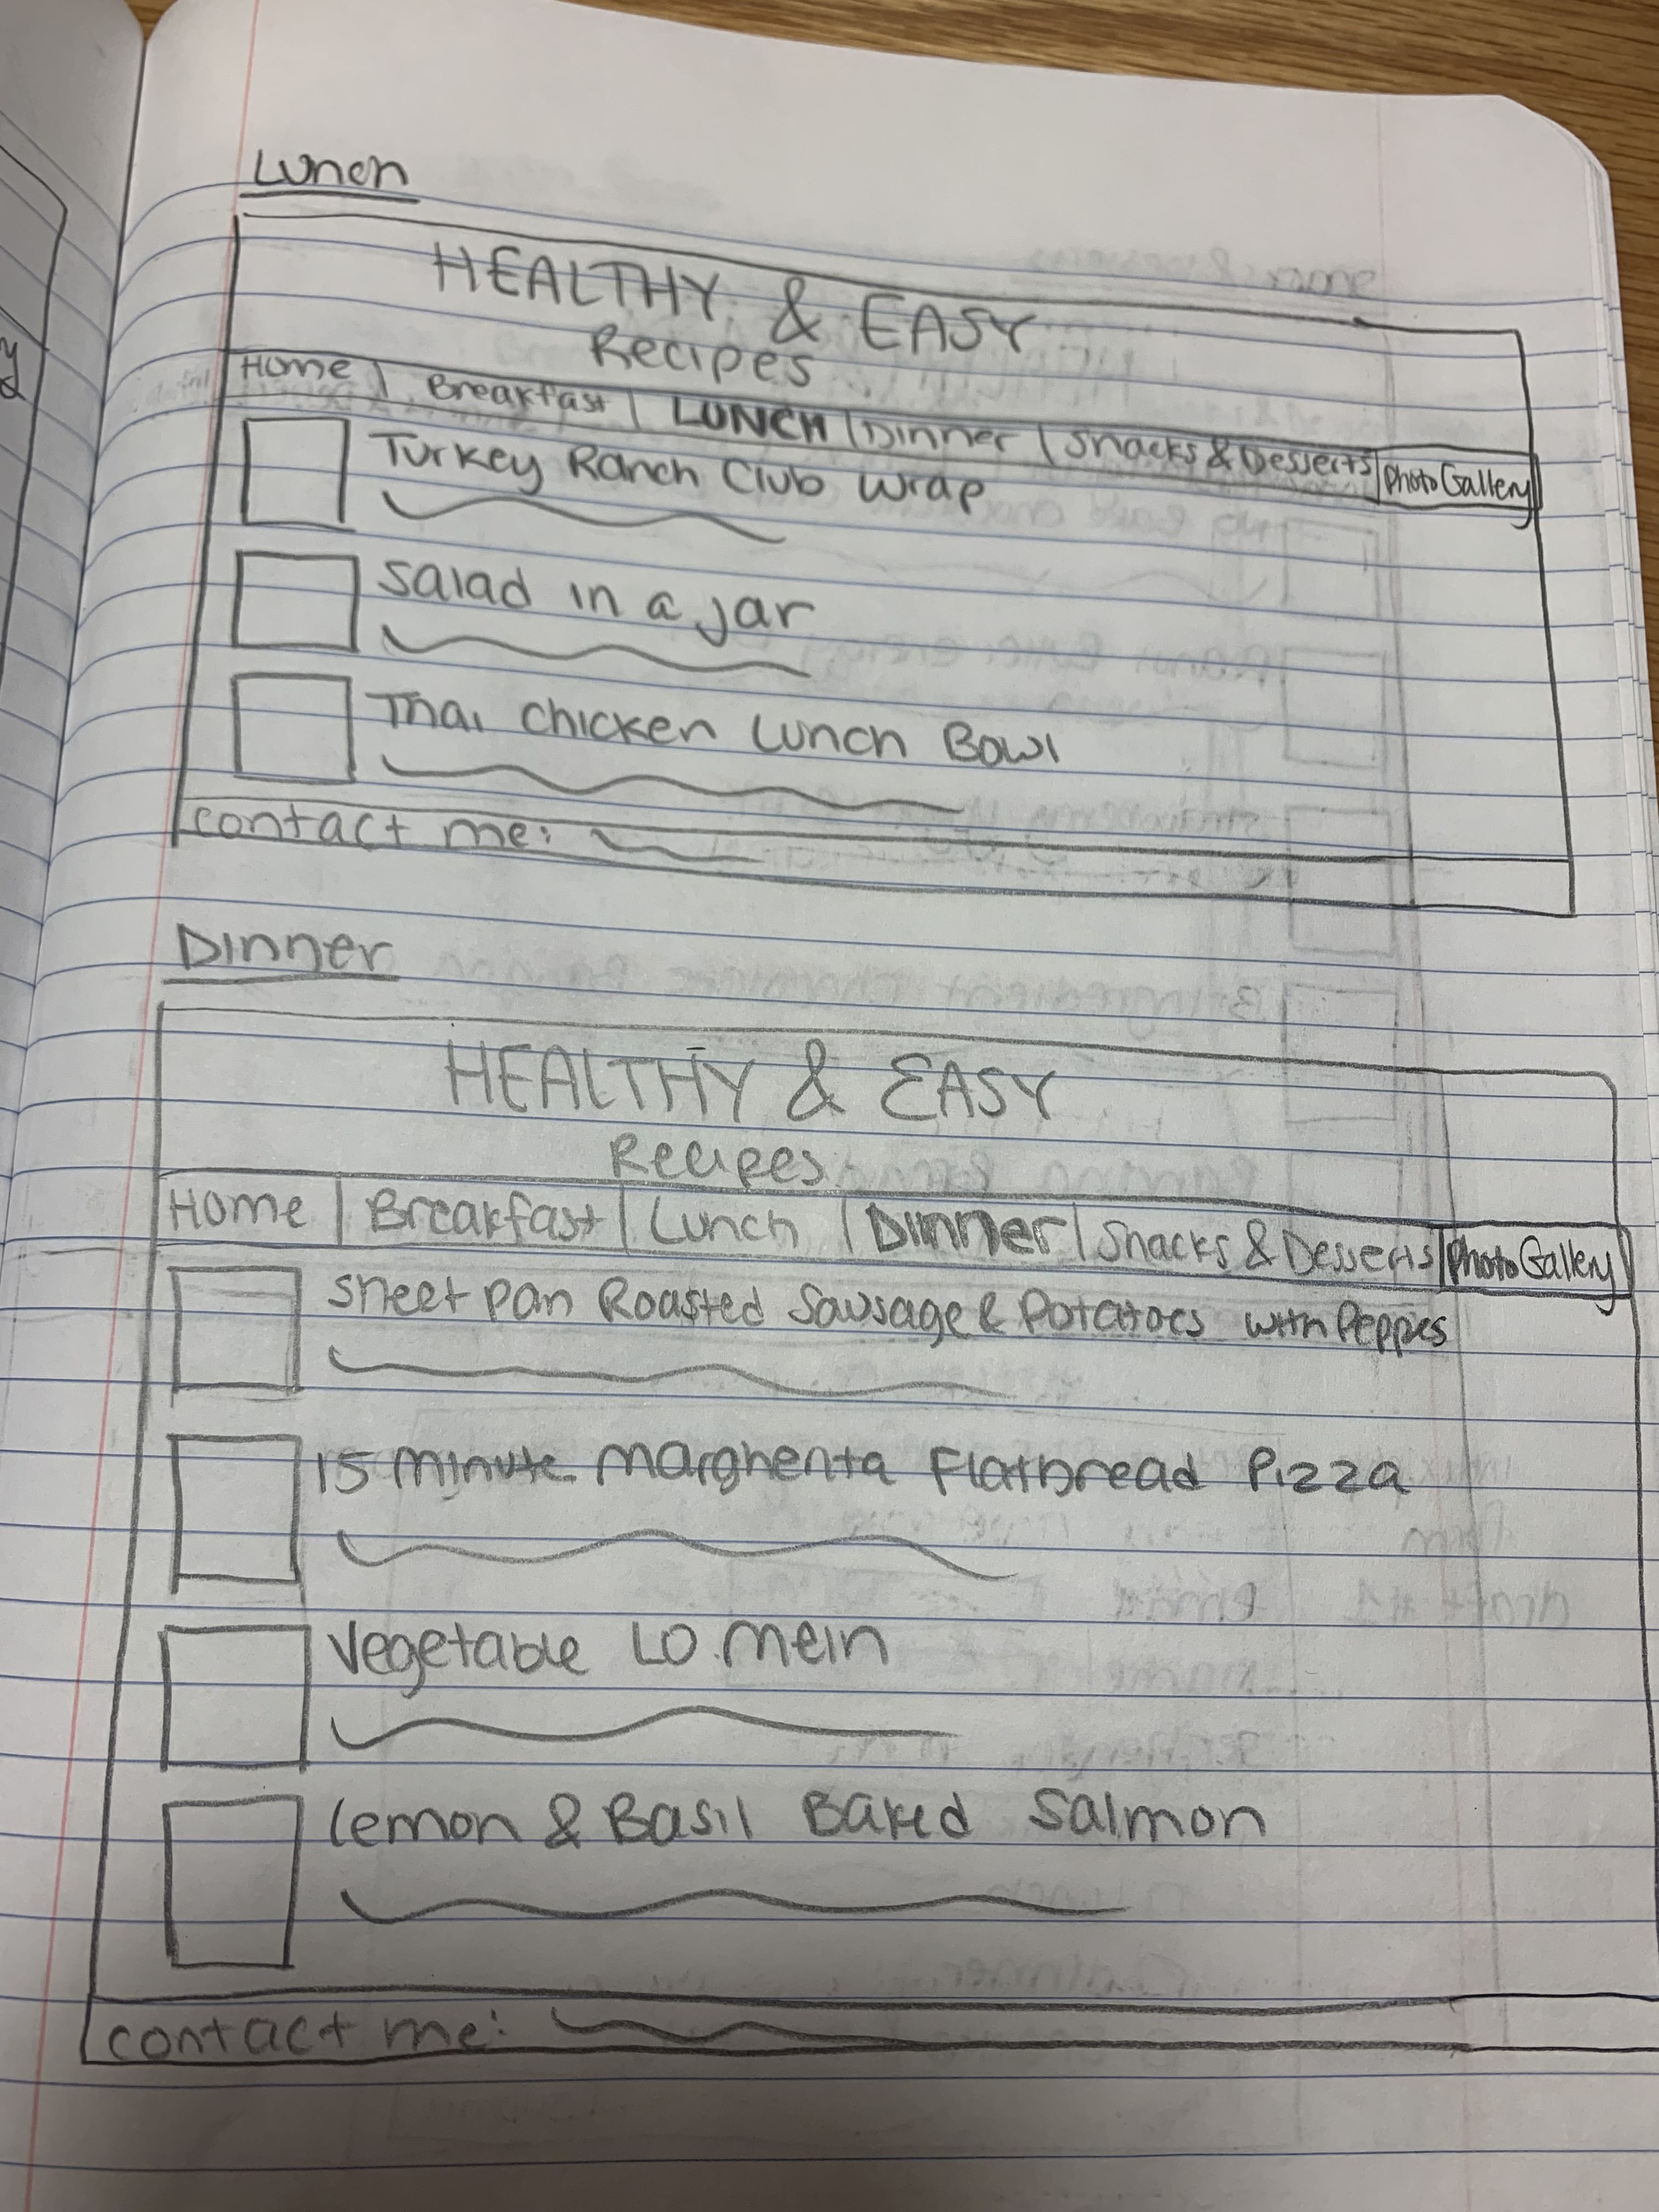 Lunch
HEALTHY & EASY
Recipes
Home | Breakfast | LUNCH | Dinner | Snacks & Desserts | Photo Gallery
Turkey Ranch Club Wrap
Salad in a jar
Thai Chicken Lunch Bowl
contact me:
Dinner
HEALTHY & EASY
Recipes
Home | Breakfast | Lunch | Dinner | Snacks & Desserts | Photo Gallery
Sheet Pan Roasted Sausage & Potatoes with
15 minute Flatbread Pizza
Vegetable Lo mein
Lemon & Basil Baked Salmon
contact me: